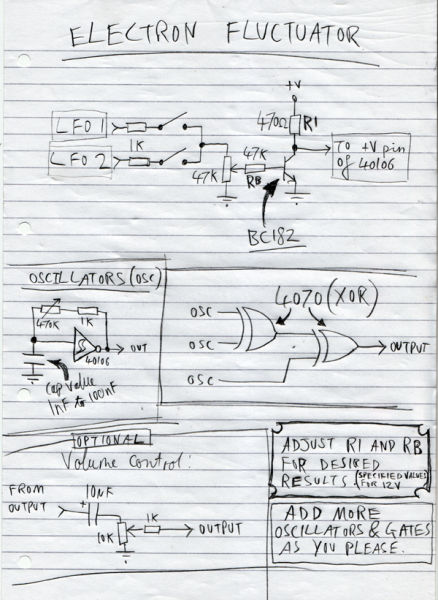 ELECTRON FLUCTUATOR
+V
470Ω R1
LFO 1
1K
LFO 2
TO +V pin
of 40106
47K
47K
RB
BC182
OSCILLATORS (OSC)
470K
1K
40106
OUT
Cap Value
1nF to 100nF
4070 (XOR)
OSC
OSC
OSC
OUTPUT
OPTIONAL
Volume Control:
FROM
OUTPUT
+
10uF
10K
1K
OUTPUT
ADJUST R1 AND RB
FOR DESIRED
RESULTS. (SPECIFIED VALUES
FOR 12V
ADD MORE
OSCILLATORS & GATES
AS YOU PLEASE.